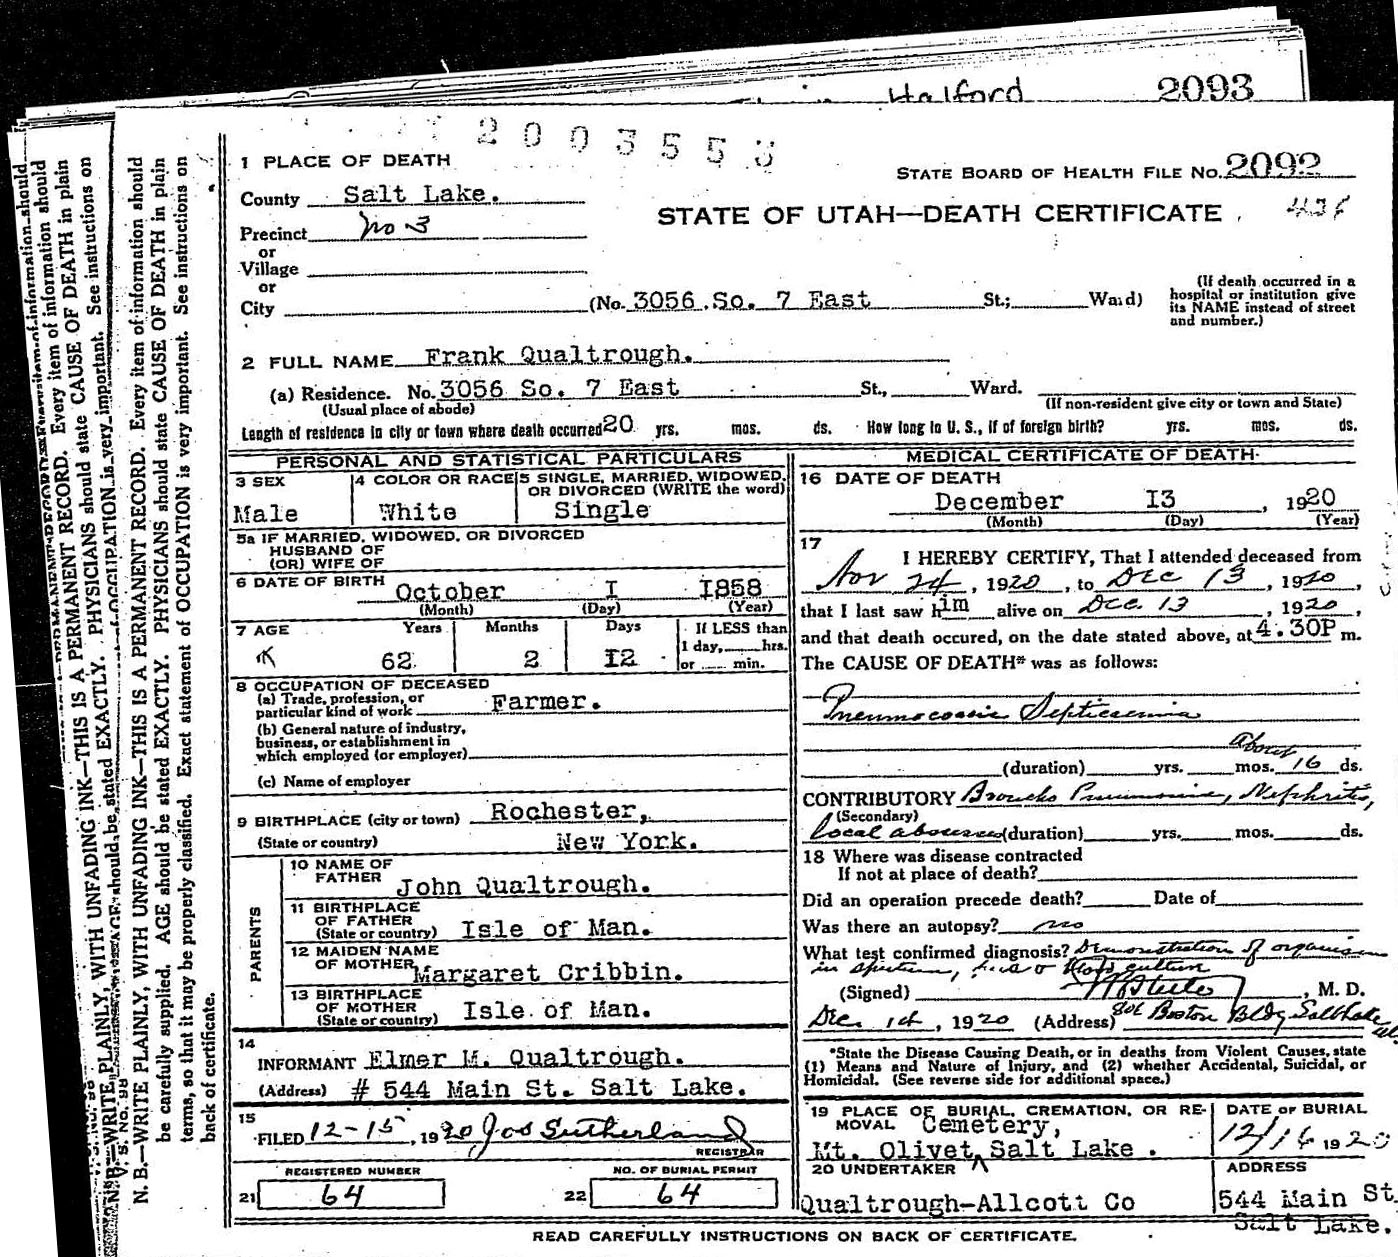 Halford 2093
2003558
1 PLACE OF DEATH
STATE BOARD OF HEALTH FILE No. 2092
County Salt Lake.
STATE OF UTAH—DEATH CERTIFICATE
Precinct No 3
or
Village
or
City (No. 3056 So. 7 East St.; Ward)
(If death occurred in a
hospital or institution give
its NAME instead of street
and number.)
2 FULL NAME Frank Qualtrough.
(a) Residence. No. 3056 So. 7 East St., Ward.
(Usual place of abode) (If non-resident give city or town and State)
Length of residence in city or town where death occurred 20 yrs. mos. ds. How long in U. S., if of foreign birth? yrs. mos. ds.
PERSONAL AND STATISTICAL PARTICULARS
3 SEX Male
4 COLOR OR RACE White
5 SINGLE, MARRIED, WIDOWED,
OR DIVORCED (WRITE the word)
Single
5a IF MARRIED, WIDOWED, OR DIVORCED
HUSBAND OF
(OR) WIFE OF
6 DATE OF BIRTH October I I858
(Month) (Day) (Year)
7 AGE Years Months Days If LESS than
1 day, hrs.
62 2 I2 or min.
8 OCCUPATION OF DECEASED
(a) Trade, profession, or
particular kind of work Farmer.
(b) General nature of industry,
business, or establishment in
which employed (or employer)
(c) Name of employer
9 BIRTHPLACE (city or town) Rochester,
(State or country) New York.
PARENTS
10 NAME OF
FATHER John Qualtrough.
11 BIRTHPLACE
OF FATHER
(State or country) Isle of Man.
12 MAIDEN NAME
OF MOTHER Margaret Cribbin.
13 BIRTHPLACE
OF MOTHER
(State or country) Isle of Man.
14
INFORMANT Elmer M. Qualtrough.
(Address) # 544 Main St. Salt Lake.
15
FILED 12-15, 1920 Jos Sutherland
REGISTRAR
REGISTERED NUMBER NO. OF BURIAL PERMIT
21 64 22 64
MEDICAL CERTIFICATE OF DEATH
16 DATE OF DEATH
December I3, 1920
(Month) (Day) (Year)
17
I HEREBY CERTIFY, That I attended deceased from
Nov 24, 1920, to Dec 13, 1920,
that I last saw him alive on Dec. 13, 1920,
and that death occured, on the date stated above, at 4.30P m.
The CAUSE OF DEATH* was as follows:
Pneumococcic Septicaemia
about
(duration) yrs. mos. 16 ds.
CONTRIBUTORY Broncho Pneumonia, Nephritis,
(Secondary)
local abscess (duration) yrs. mos. ds.
18 Where was disease contracted
If not at place of death?
Did an operation precede death? Date of
Was there an autopsy? no
What test confirmed diagnosis? Demonstration of organism
in sputum, pus & blood culture
(Signed) , M. D.
Dec. 14, 1920 (Address) 806 Boston Bldg Salt Lake
*State the Disease Causing Death, or in deaths from Violent Causes, state
(1) Means and Nature of Injury, and (2) whether Accidental, Suicidal, or
Homicidal. (See reverse side for additional space.)
19 PLACE OF BURIAL, CREMATION, OR RE-
MOVAL Cemetery,
Mt. Olivet Salt Lake.
DATE OF BURIAL
12/16 1920
20 UNDERTAKER
Qualtrough-Allcott Co
ADDRESS
544 Main St.
Salt Lake.
READ CAREFULLY INSTRUCTIONS ON BACK OF CERTIFICATE.
N. B.—WRITE PLAINLY, WITH UNFADING INK—THIS IS A PERMANENT RECORD. Every item of information should
be carefully supplied. AGE should be stated EXACTLY. PHYSICIANS should state CAUSE OF DEATH in plain
terms, so that it may be properly classified. Exact statement of OCCUPATION is very important. See instructions on
back of certificate.